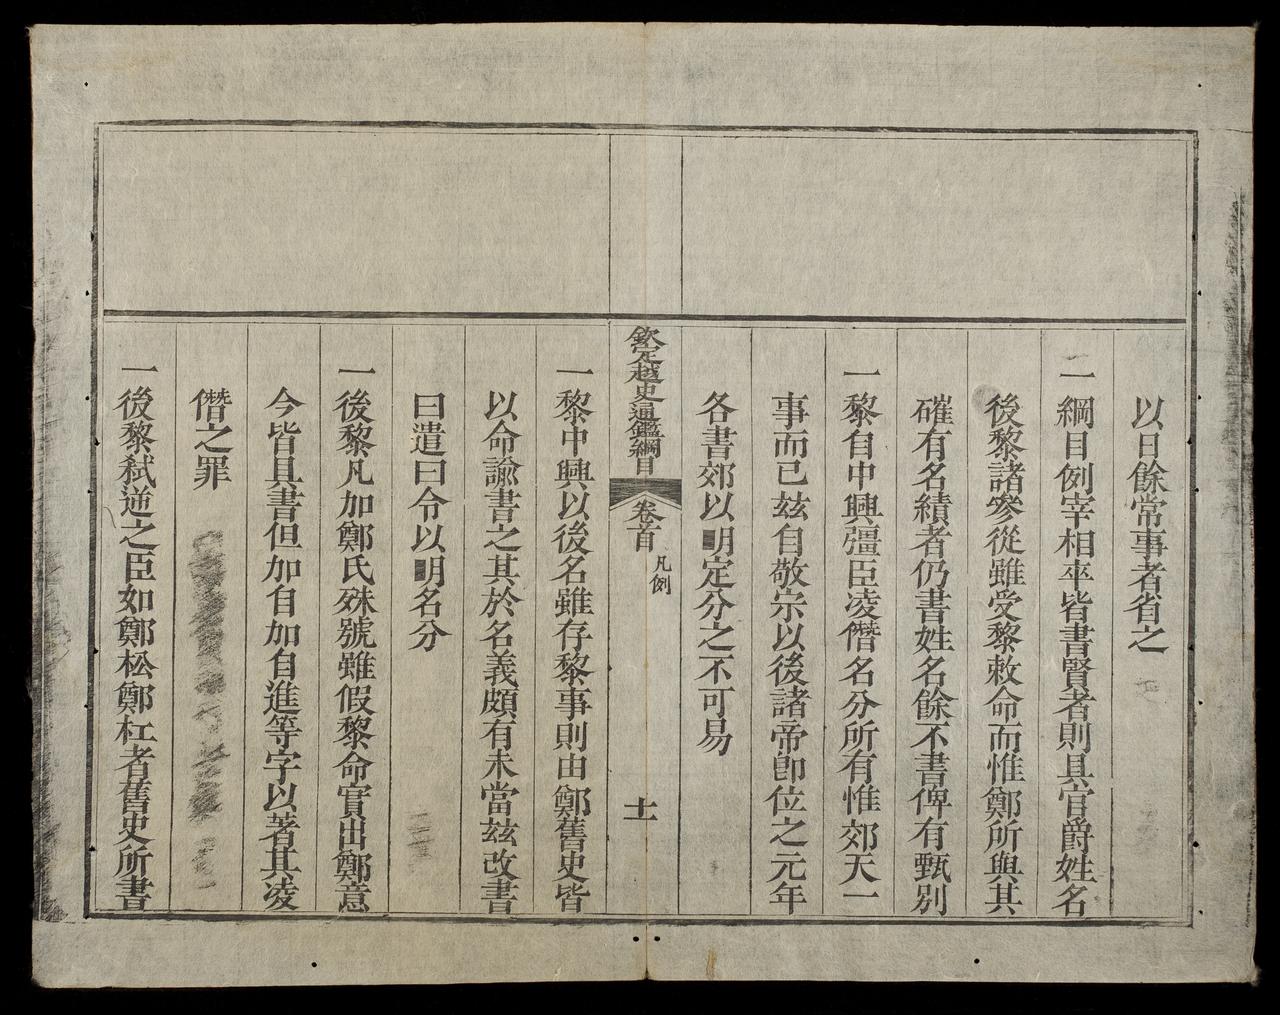 以日餘常事者省之
一綱目例宰相卒皆書賢者則具官爵姓名
後黎諸參從雖受黎敕命而惟鄭所與其
確有名績者仍書姓名餘不書俾有甄別
一黎自中興彊臣凌僭名分所有惟郊天一
事而已玆自敬宗以後諸帝卽位之元年
各書郊以明定分之不可易
欽定越史通鑑綱目
卷首
凡例
十一
一黎中興以後名雖存黎事則由鄭舊史皆
以命諭書之其於名義頗有未當玆改書
曰遣曰令以明名分
一後黎凡加鄭氏殊號雖假黎命實出鄭意
今皆具書但加自加自進等字以著其凌
僭之罪
一後黎弑逆之臣如鄭松鄭杠者舊史所書